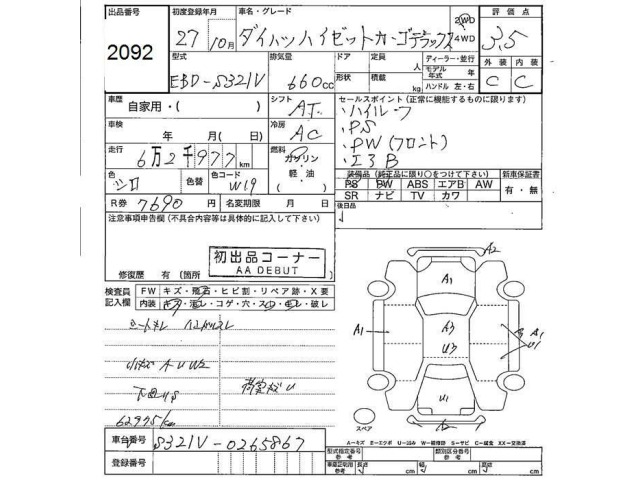 出品番号 初度登録年月 車名・グレード 評価点
2092 27年 10月 ダイハツハイゼットカーゴデラックス 2WD 4WD 3.5
型式 排気量 ドア 定員 ディーラー・並行 外装 内装
EBD-S321V 660cc 形状 積載 人 kg モデル年式 年 ハンドル 左・右 C C
車歴 自家用・( ) シフト AT セールスポイント(正常に機能するものに限ります)
車検 年 月( 日) 冷房 AC ・ハイルーフ
・PS
走行 6万2千977km 燃料 ガソリン 軽油 ・PW(フロント)
・エヨB
色 シロ 色替 色コード W19 装備品(純正品に限り○をつけて下さい) 新車保証書
PS PW ABS エアB AW 有・無
SR ナビ TV カワ
R券 7690円 名変期限 月 日 後日品
注意事項申告欄(不具合内容等は具体的に記入して下さい)
初出品コーナー
AA DEBUT
修復歴 有(箇所
検査員記入欄 FW キズ・飛石・ヒビ割・リペア跡・X要
内装 キズ・汚レ・コゲ・穴・スレ・モレ・破レ
A2
A1
A1 A3 A1
U3 U1
U1
A2
62975km
荷室キズU
スペア
A-キズ E-エクボ U-凹み W-補修跡 S-サビ C-腐食 XX-交換済
車台番号 S321V-0265867 型式指定番号 参考 類別区分番号 参考
登録番号 車庫証明用 参考 長さ cm 幅 cm 高さ cm